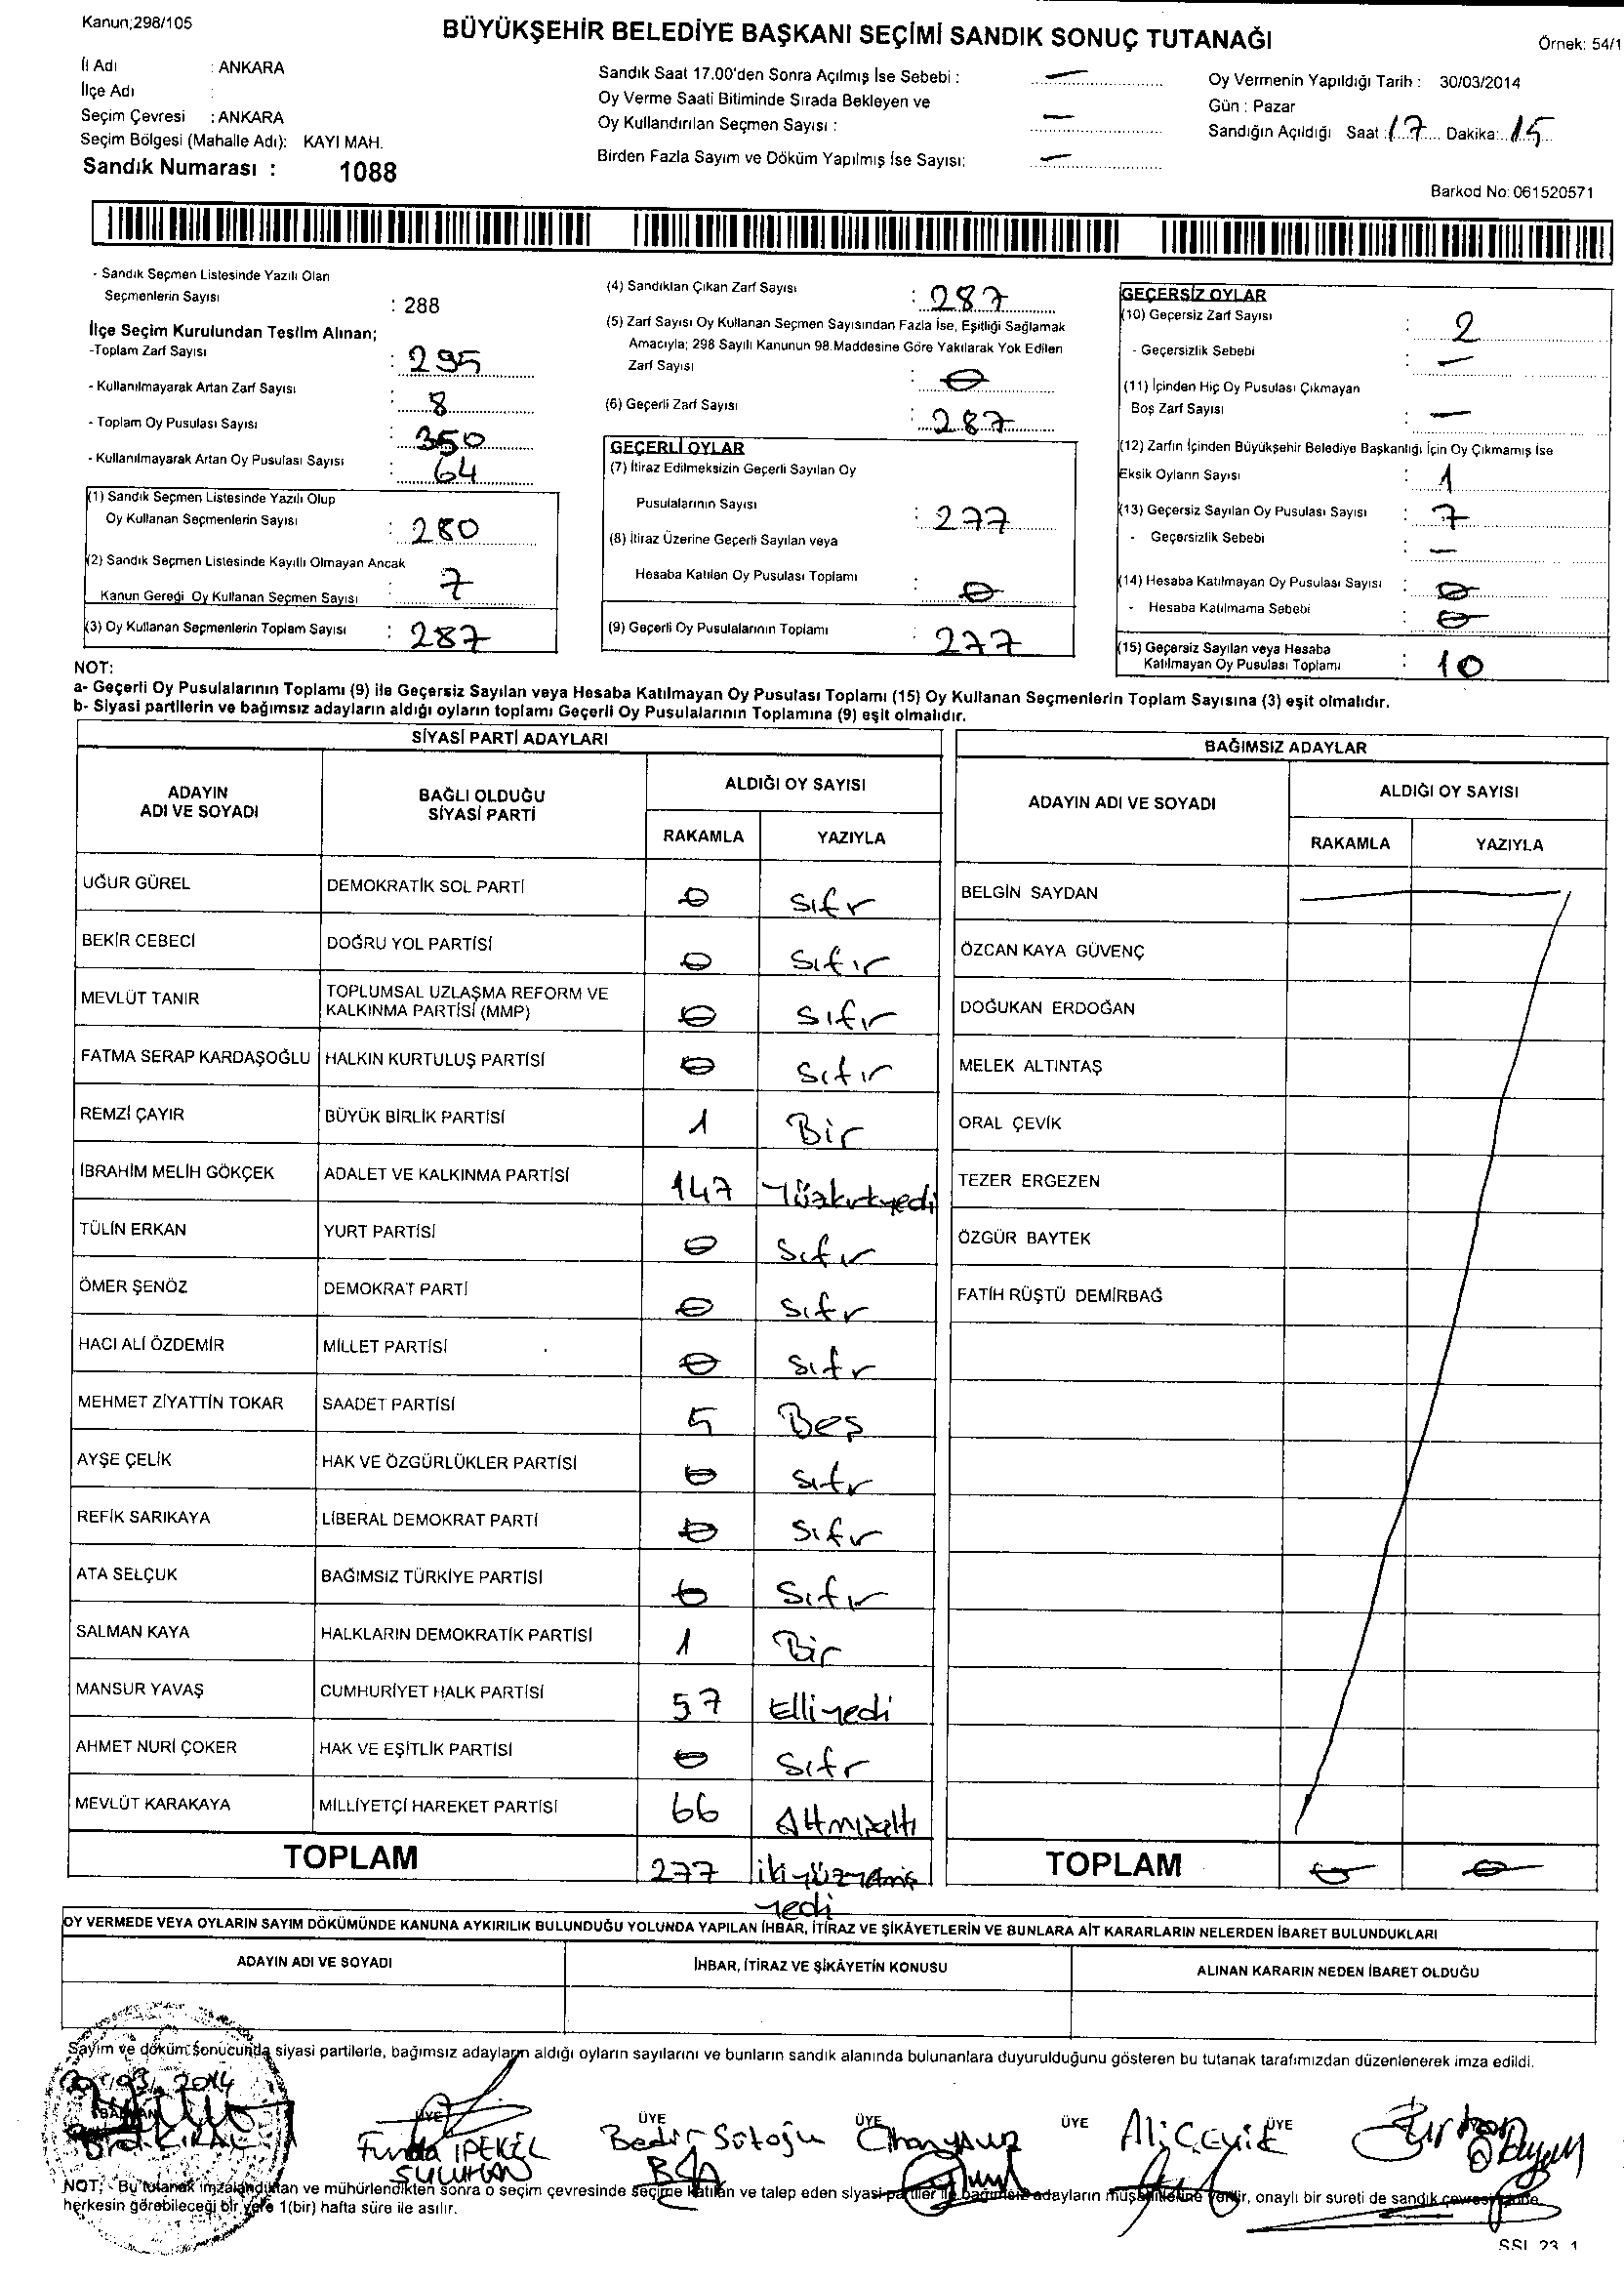 Kanun;298/105
BÜYÜKŞEHİR BELEDİYE BAŞKANI SEÇİMİ SANDIK SONUÇ TUTANAĞI
Örnek: 54/1
İl Adı : ANKARA
İlçe Adı :
Seçim Çevresi : ANKARA
Seçim Bölgesi (Mahalle Adı): KAYI MAH.
Sandık Numarası : 1088
Sandık Saat 17.00'den Sonra Açılmış İse Sebebi : —
Oy Verme Saati Bitiminde Sırada Bekleyen ve
Oy Kullandırılan Seçmen Sayısı : —
Birden Fazla Sayım ve Döküm Yapılmış İse Sayısı: —
Oy Vermenin Yapıldığı Tarih : 30/03/2014
Gün : Pazar
Sandığın Açıldığı Saat : 17 Dakika: 15
Barkod No: 061520571
- Sandık Seçmen Listesinde Yazılı Olan
Seçmenlerin Sayısı : 288
İlçe Seçim Kurulundan Teslim Alınan;
-Toplam Zarf Sayısı : 295
- Kullanılmayarak Artan Zarf Sayısı : 8
- Toplam Oy Pusulası Sayısı : 350
- Kullanılmayarak Artan Oy Pusulası Sayısı : 64
(1) Sandık Seçmen Listesinde Yazılı Olup
Oy Kullanan Seçmenlerin Sayısı : 280
(2) Sandık Seçmen Listesinde Kayıtlı Olmayan Ancak
Kanun Gereği Oy Kullanan Seçmen Sayısı : 7
(3) Oy Kullanan Seçmenlerin Toplam Sayısı : 287
(4) Sandıktan Çıkan Zarf Sayısı : 287
(5) Zarf Sayısı Oy Kullanan Seçmen Sayısından Fazla İse, Eşitliği Sağlamak
Amacıyla; 298 Sayılı Kanunun 98.Maddesine Göre Yakılarak Yok Edilen
Zarf Sayısı : 0
(6) Geçerli Zarf Sayısı : 287
GEÇERLİ OYLAR
(7) İtiraz Edilmeksizin Geçerli Sayılan Oy
Pusulalarının Sayısı : 277
(8) İtiraz Üzerine Geçerli Sayılan veya
Hesaba Katılan Oy Pusulası Toplamı : 0
(9) Geçerli Oy Pusulalarının Toplamı : 277
GEÇERSİZ OYLAR
(10) Geçersiz Zarf Sayısı : 2
- Geçersizlik Sebebi : —
(11) İçinden Hiç Oy Pusulası Çıkmayan
Boş Zarf Sayısı : —
(12) Zarfın İçinden Büyükşehir Belediye Başkanlığı İçin Oy Çıkmamış İse
Eksik Oyların Sayısı : 1
(13) Geçersiz Sayılan Oy Pusulası Sayısı : 7
- Geçersizlik Sebebi : —
(14) Hesaba Katılmayan Oy Pusulası Sayısı : 0
- Hesaba Katılmama Sebebi : 0
(15) Geçersiz Sayılan veya Hesaba
Katılmayan Oy Pusulası Toplamı : 10
NOT:
a- Geçerli Oy Pusulalarının Toplamı (9) ile Geçersiz Sayılan veya Hesaba Katılmayan Oy Pusulası Toplamı (15) Oy Kullanan Seçmenlerin Toplam Sayısına (3) eşit olmalıdır.
b- Siyasi partilerin ve bağımsız adayların aldığı oyların toplamı Geçerli Oy Pusulalarının Toplamına (9) eşit olmalıdır.
SİYASİ PARTİ ADAYLARI
ADAYIN
ADI VE SOYADI
BAĞLI OLDUĞU
SİYASİ PARTİ
ALDIĞI OY SAYISI
RAKAMLA YAZIYLA
UĞUR GÜREL DEMOKRATİK SOL PARTİ 0 Sıfr
BEKİR CEBECİ DOĞRU YOL PARTİSİ 0 Sıfır
MEVLÜT TANIR TOPLUMSAL UZLAŞMA REFORM VE
KALKINMA PARTİSİ (MMP) 0 Sıfır
FATMA SERAP KARDAŞOĞLU HALKIN KURTULUŞ PARTİSİ 0 Sıfır
REMZİ ÇAYIR BÜYÜK BİRLİK PARTİSİ 1 Bir
İBRAHİM MELİH GÖKÇEK ADALET VE KALKINMA PARTİSİ 147 Yüzkırkyedi
TÜLİN ERKAN YURT PARTİSİ 0 Sıfır
ÖMER ŞENÖZ DEMOKRAT PARTİ 0 Sıfr
HACI ALİ ÖZDEMİR MİLLET PARTİSİ 0 Sıfr
MEHMET ZİYATTİN TOKAR SAADET PARTİSİ 5 Beş
AYŞE ÇELİK HAK VE ÖZGÜRLÜKLER PARTİSİ 0 Sıfr
REFİK SARIKAYA LİBERAL DEMOKRAT PARTİ 0 Sıfır
ATA SELÇUK BAĞIMSIZ TÜRKİYE PARTİSİ 0 Sıfır
SALMAN KAYA HALKLARIN DEMOKRATİK PARTİSİ 1 Bir
MANSUR YAVAŞ CUMHURİYET HALK PARTİSİ 57 Elliyedi
AHMET NURİ ÇOKER HAK VE EŞİTLİK PARTİSİ 0 Sıfr
MEVLÜT KARAKAYA MİLLİYETÇİ HAREKET PARTİSİ 66 Altmışaltı
TOPLAM 277 ikiyüzyetmiş
yedi
BAĞIMSIZ ADAYLAR
ADAYIN ADI VE SOYADI
ALDIĞI OY SAYISI
RAKAMLA YAZIYLA
BELGİN SAYDAN
ÖZCAN KAYA GÜVENÇ
DOĞUKAN ERDOĞAN
MELEK ALTINTAŞ
ORAL ÇEVİK
TEZER ERGEZEN
ÖZGÜR BAYTEK
FATİH RÜŞTÜ DEMİRBAĞ
TOPLAM 0 0
OY VERMEDE VEYA OYLARIN SAYIM DÖKÜMÜNDE KANUNA AYKIRILIK BULUNDUĞU YOLUNDA YAPILAN İHBAR, İTİRAZ VE ŞİKÂYETLERİN VE BUNLARA AİT KARARLARIN NELERDEN İBARET BULUNDUKLARI
ADAYIN ADI VE SOYADI İHBAR, İTİRAZ VE ŞİKÂYETİN KONUSU ALINAN KARARIN NEDEN İBARET OLDUĞU
Sayım ve döküm sonucunda siyasi partilerle, bağımsız adayların aldığı oyların sayılarını ve bunların sandık alanında bulunanlara duyurulduğunu gösteren bu tutanak tarafımızdan düzenlenerek imza edildi.
2014
BAŞKAN ÜYE ÜYE ÜYE ÜYE ÜYE
Funda İPEKÇİL Bedir Sütoğu Ali ÇEVİK
SULUHAN
NOT: - Bu tutanak imzalandıktan ve mühürlendikten sonra o seçim çevresinde seçime katılan ve talep eden siyasi partiler ile bağımsız adayların müşahitlerine verilir, onaylı bir sureti de sandık çevresinde
herkesin görebileceği bir yere 1(bir) hafta süre ile asılır.
SSI 23 1